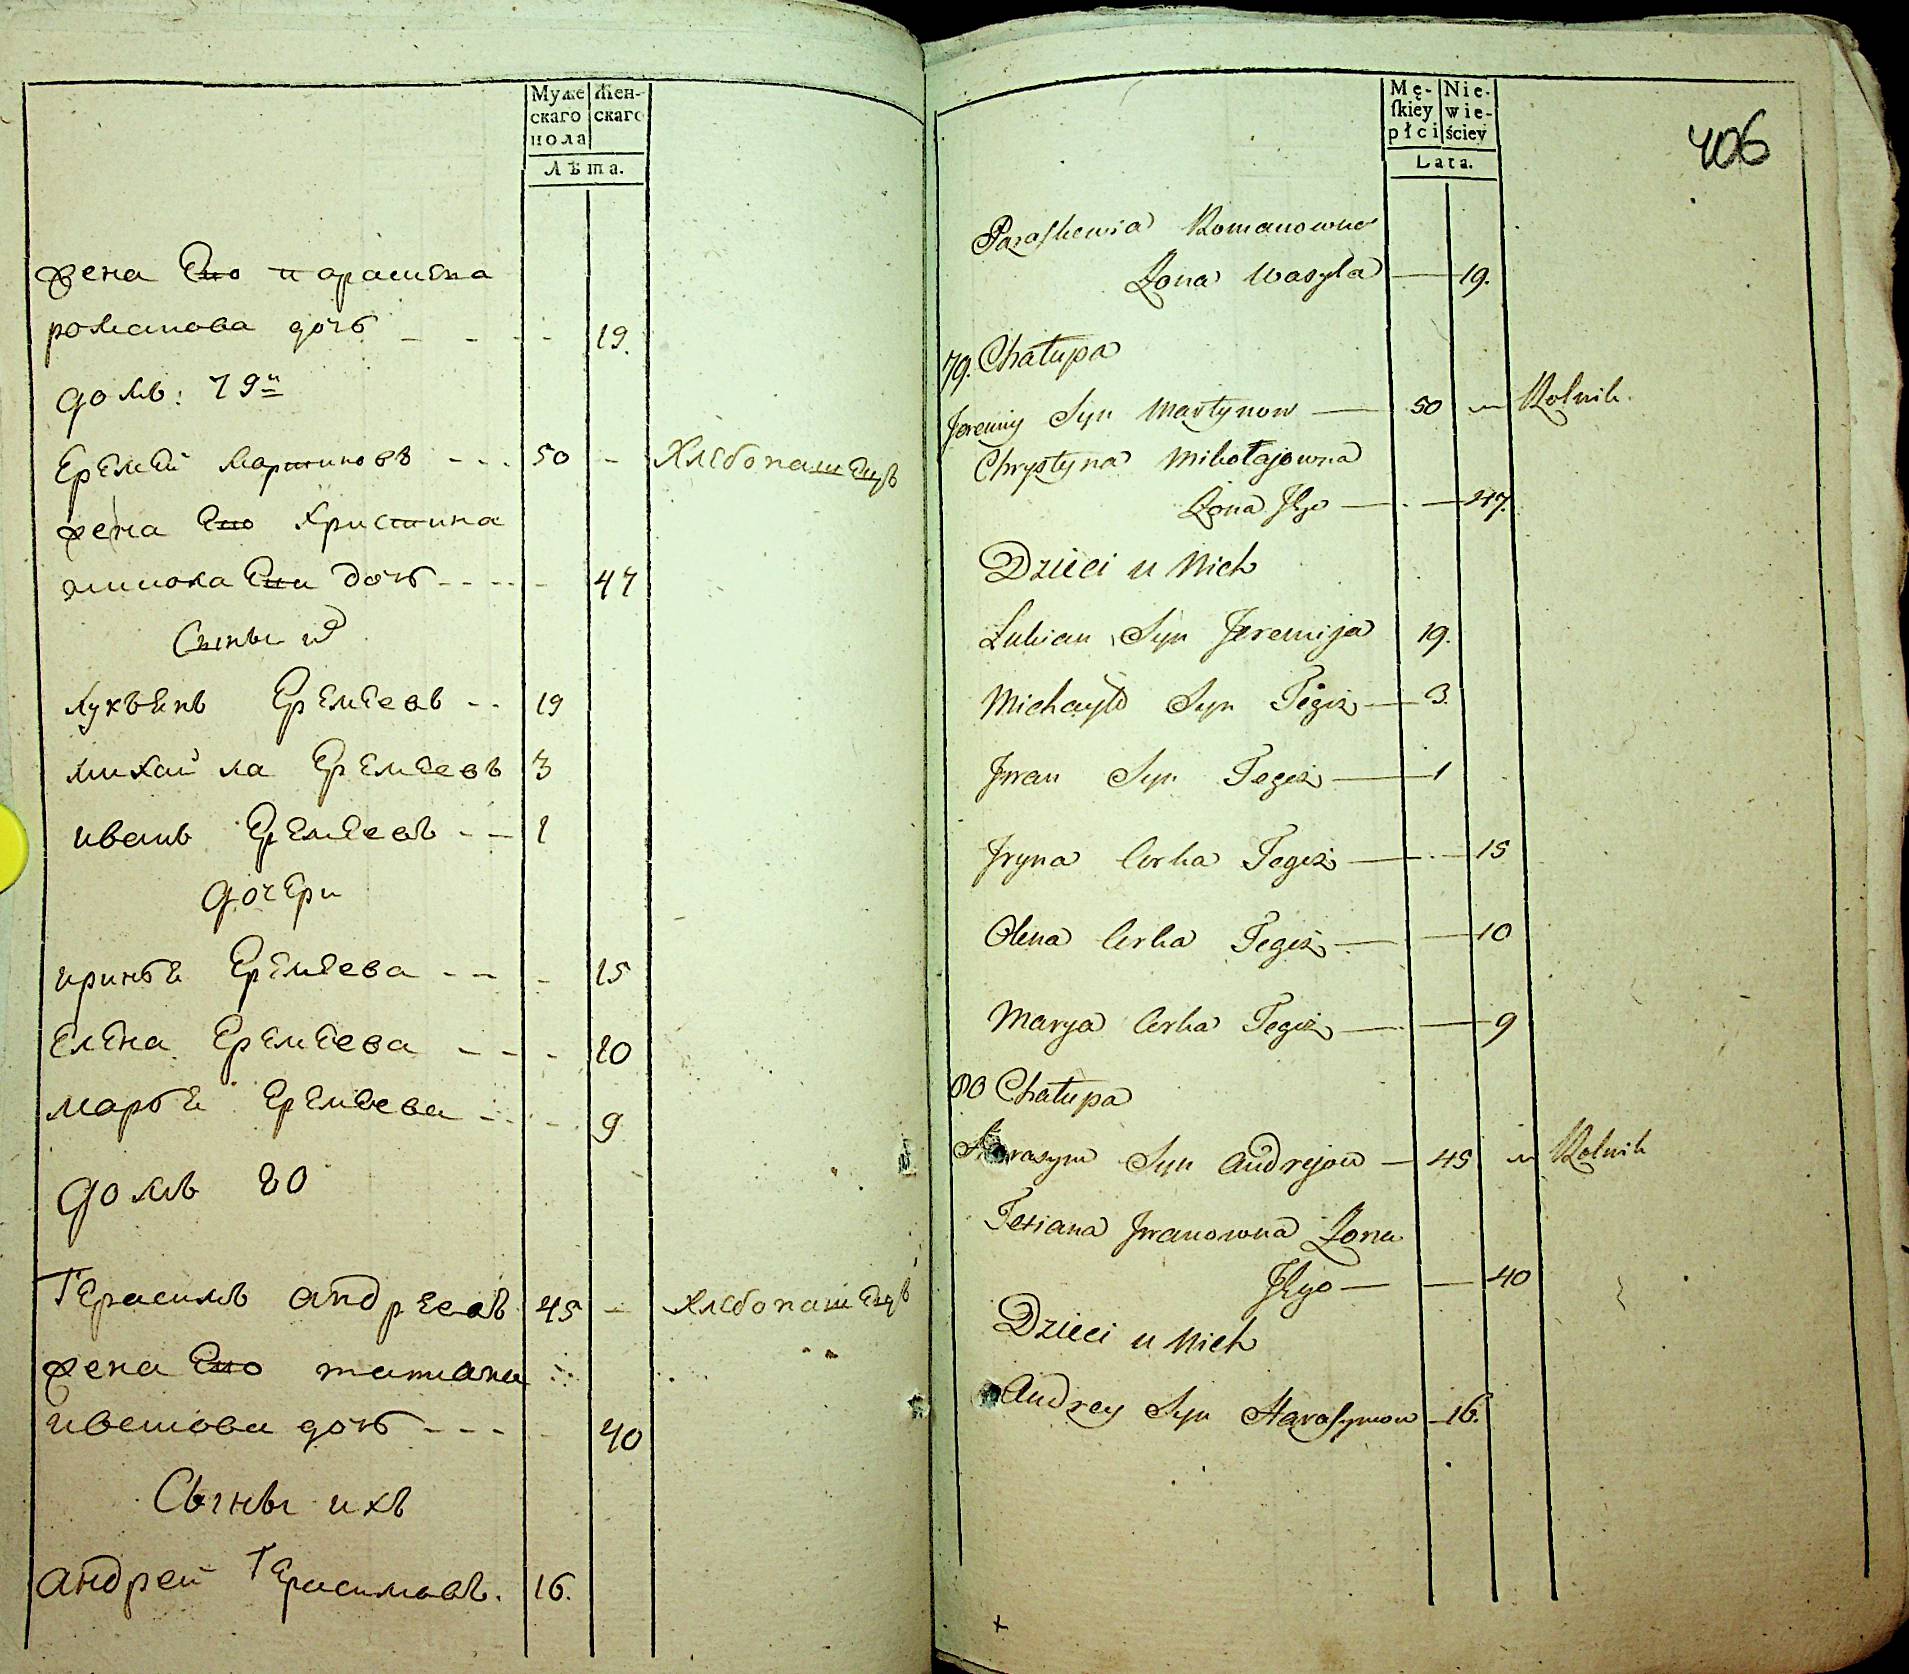 Муже
скаго
пола
Жен-
скаго
Лѣта.
жена Его парасика
романова дочъ - - - 19.
домъ: 79й
Еремей мартиновъ - - - 50 - Хлебопашецъ
жена Его Христина
миколаева дочъ - - - - 47
Сыны их
лукъянъ Еремеевъ - - 19
михайла Еремеевъ 3
иванъ Еремеевъ - - 1
дочери
иринья Еремеева - - - 15
Елена Еремеева - - - 10
марья Еремеева - - - 9
домъ 80
Герасимъ андреевъ 45 - хлебопашецъ
жена Его татиана
иванова дочъ - - - - 40
Сыны ихъ
андрей Герасимовъ. 16.
Mę-
skiey
płci
Nie-
wie-
ściey
Lata.
406
Paraskewia Romanowna
Żona Wasyla — 19.
79. Chałupa
Jeremiy Syn Martynow — 50 Rolnik.
Chrystyna Mikołajowna
Żona Jego — 47.
Dzieci u Nich
Lukian Syn Jeremija 19.
Michayło Syn Tegoż — 3.
Jwan Syn Tegoż — 1
Jryna Corka Tegoż — 15
Olena Corka Tegoż — 10
Marya Corka Tegoż — 9
80 Chałupa
Harasym Syn Andrejow — 45 Rolnik
Tetiana Jwanowna Żona
Jego — 40
Dzieci u Nich
Andrey Syn Harasymow — 16.